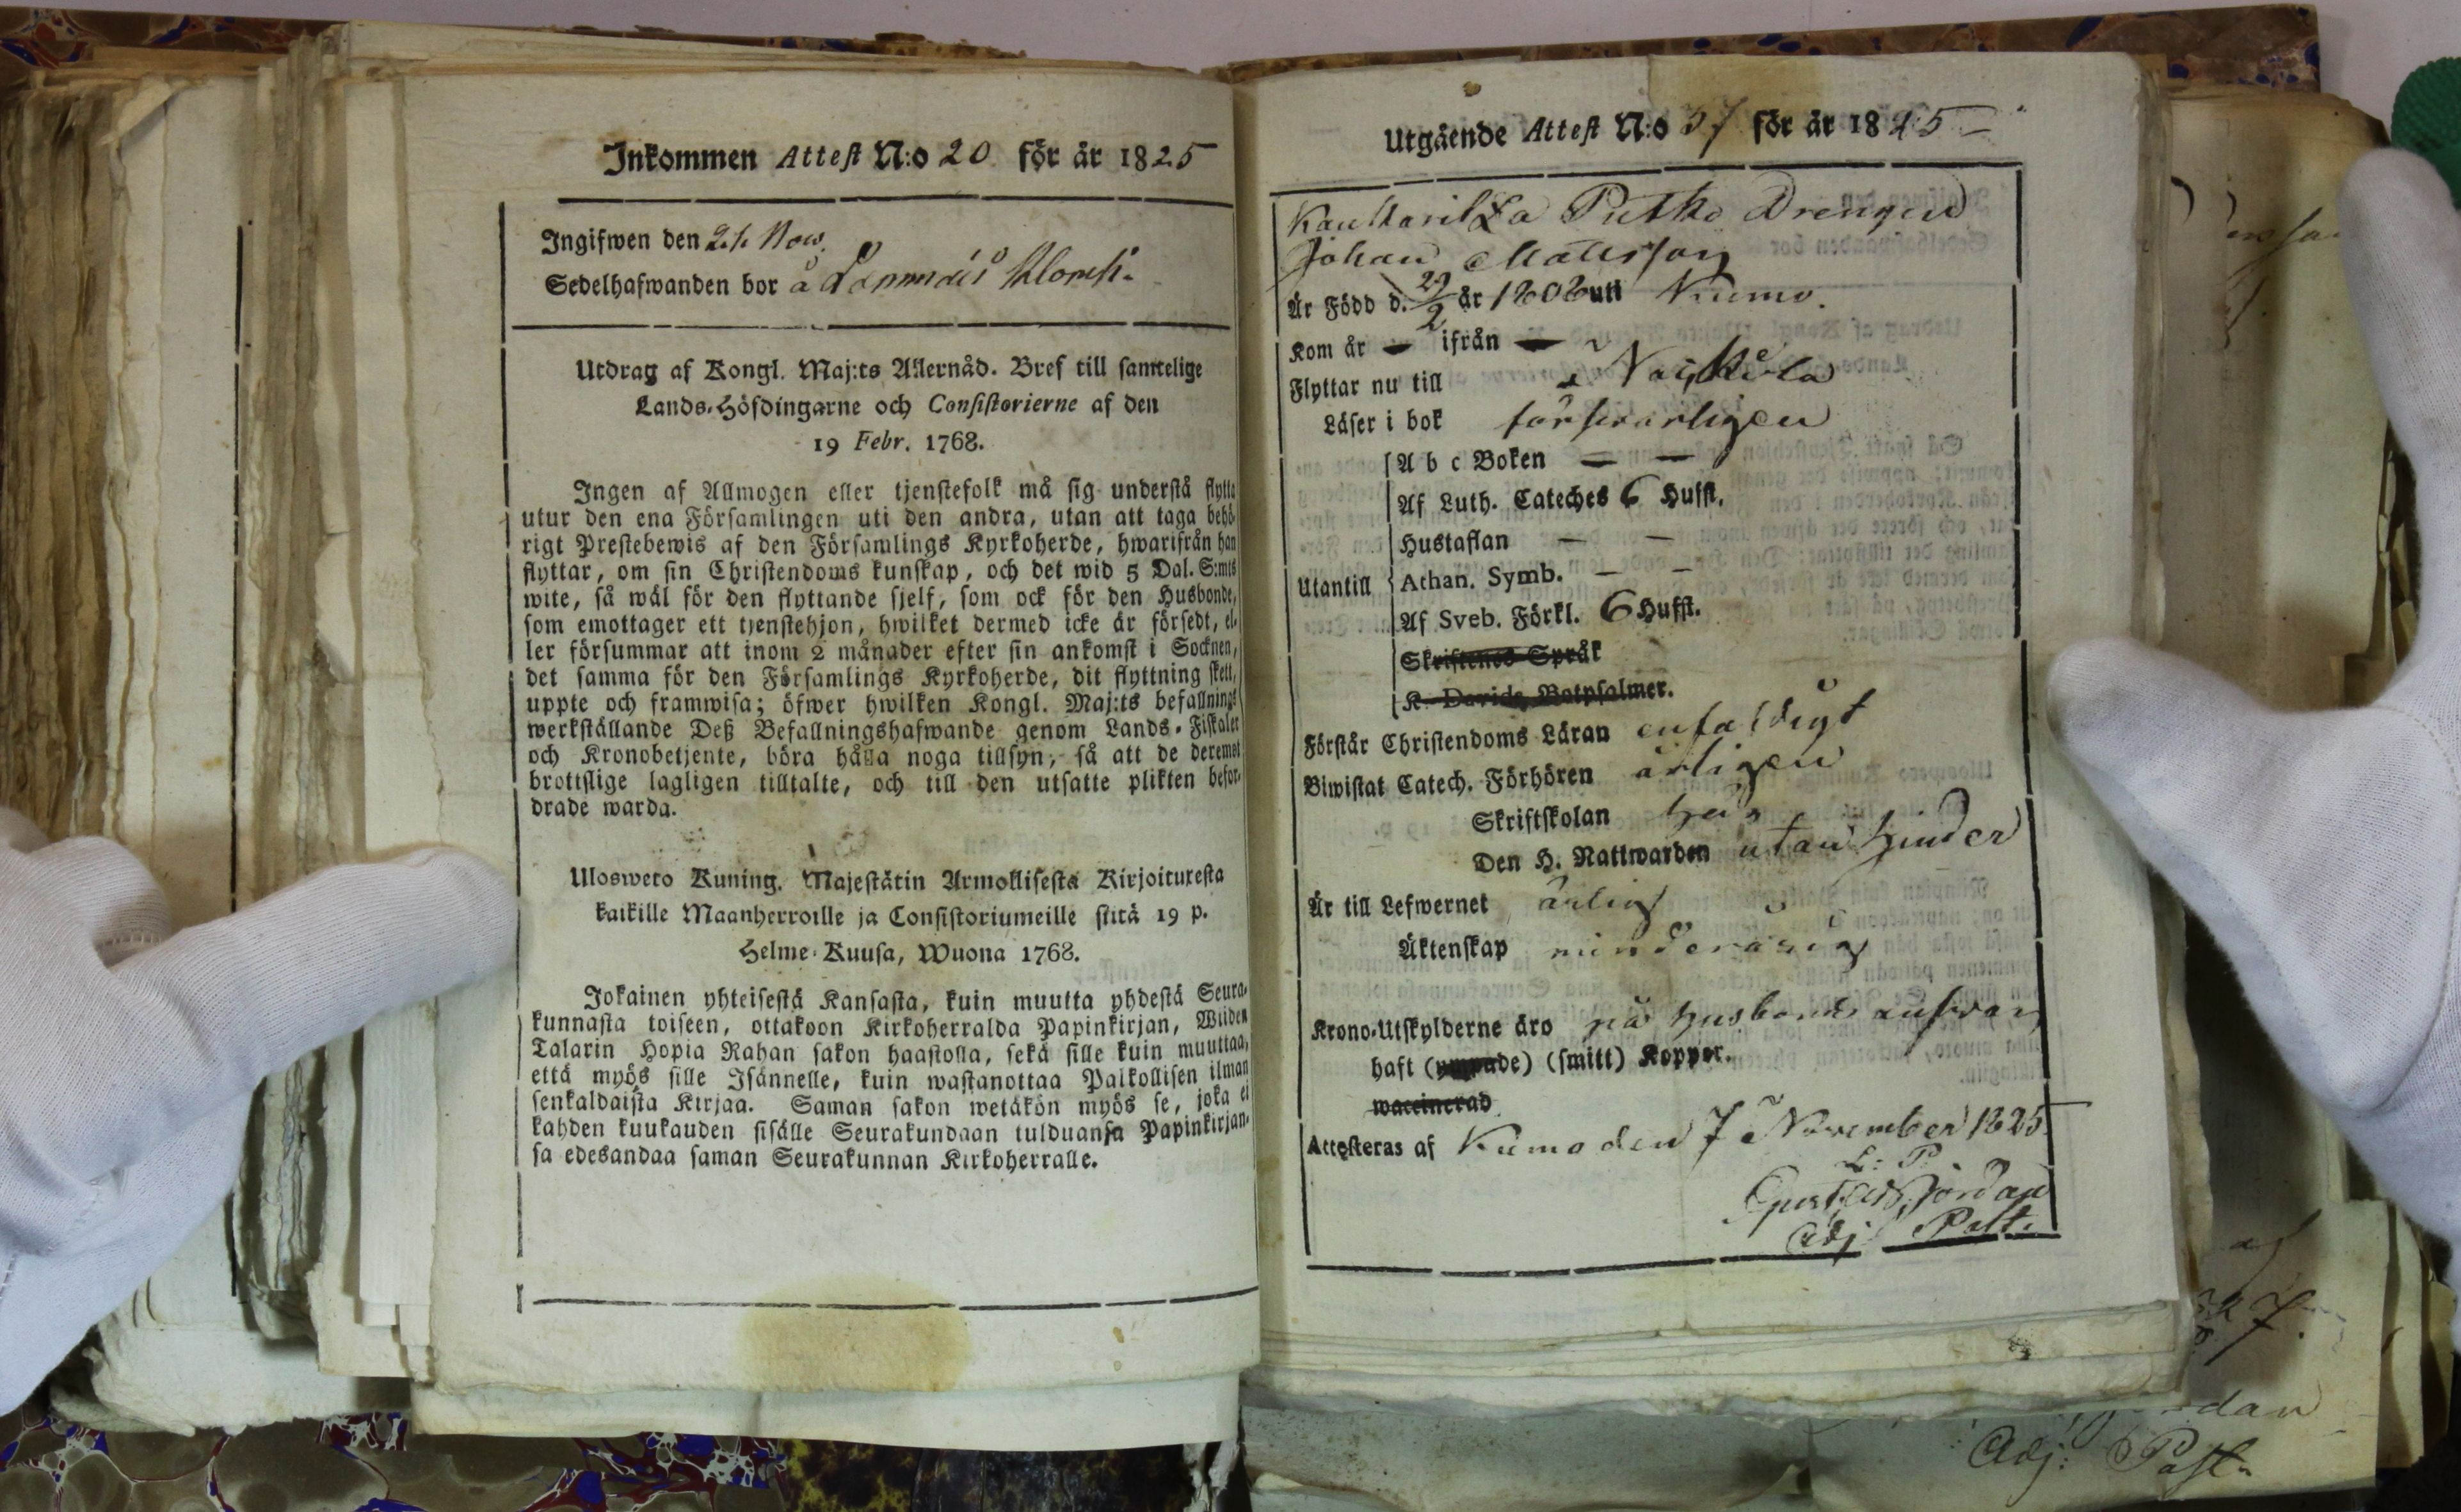 Inkommen Attest N:o 20 för år 1825
Ingifwen den 21 Nov.
Sedelhafwanden bor å
Utdrag af Kongl. Maj:ts Allernåd. Bref till samtelige
Lands-Höfdingarne och Consistorierne af den
19 Febr. 1768.
Ingen af Allmogen eller tjenstefolk må sig understå flytta
utur den ena Församlingen uti den andra, utan att taga behö-
rigt Prestebewis af den Församlings Kyrkoherde, hwarifrån han
flyttar, om sin Christendoms kunskap, och det wid 5 Dal. S:mts
wite, så wäl för den flyttande sjelf, som ock för den Husbonde,
som emottager ett tjenstehjon, hwilket dermed icke är försedt, el-
ler försummar att inom 2 månader efter sin ankomst i Socknen,
det samma för den Församlings Kyrkoherde, dit flyttning skett,
uppte och framwisa; öfwer hwilken Kongl. Maj:ts befallnings
werkställande Deß Befallningshafwande genom Lands-Fiskaler
och Kronobetjente, böra hålla noga tillsyn, så att de deremot
brottslige lagligen tilltalte, och till den utsatte plikten befor-
drade warda.
Ulosweto Kuning. Majestätin Armollisesta Kirjoituxesta
kaikille Maanherroille ja Consistoriumeille siitä 19 p.
Helme-Kuusa, Wuona 1768.
Jokainen yhteisestä Kansasta, kuin muutta yhdestä Seura-
kunnasta toiseen, ottakoon Kirkoherralda Papinkirjan, Wiiden
Talarin Hopia Rahan sakon haastolla, sekä sille kuin muuttaa,
että myös sille Isännelle, kuin wastanottaa Palkollisen ilman
senkaldaista Kirjaa. Saman sakon wetäkön myös se, joka ei
kahden kuukauden sisälle Seurakundaan tulduansa Papinkirjan-
sa edesandaa saman Seurakunnan Kirkoherralle.
Utgående Attest N:o 37 för år 1825
Drengen
Johan Mattsson
Är Född d. 29/2 år 1808 uti Kumo.
Kom år — ifrån —
Flyttar nu till
Läser i bok försvarligen
A b c Boken — —
Af Luth. Cateches 6 Hufst.
Hustaflan — —
Utantill
Athan. Symb. — —
Af Sveb. Förkl. 6 Hufst.
Skriftenes Språk
K. Davids Botpsalmer.
Förstår Christendoms Läran enfaldigt
Biwistat Catech. Förhören årligen
Skriftskolan här
Den H. Nattwarden utan hinder
Är till Lefwernet ärlig
Äktenskap minderårig
Krono-Utskylderne äro på husbondens ansvar
haft (ympade) (smitt) Koppor.
waccinerad
Attesteras af Kumo den 7 November 1825
L: P.
Gust. Ad. Jordan
Adj. Past.
dan
Adj: Past.